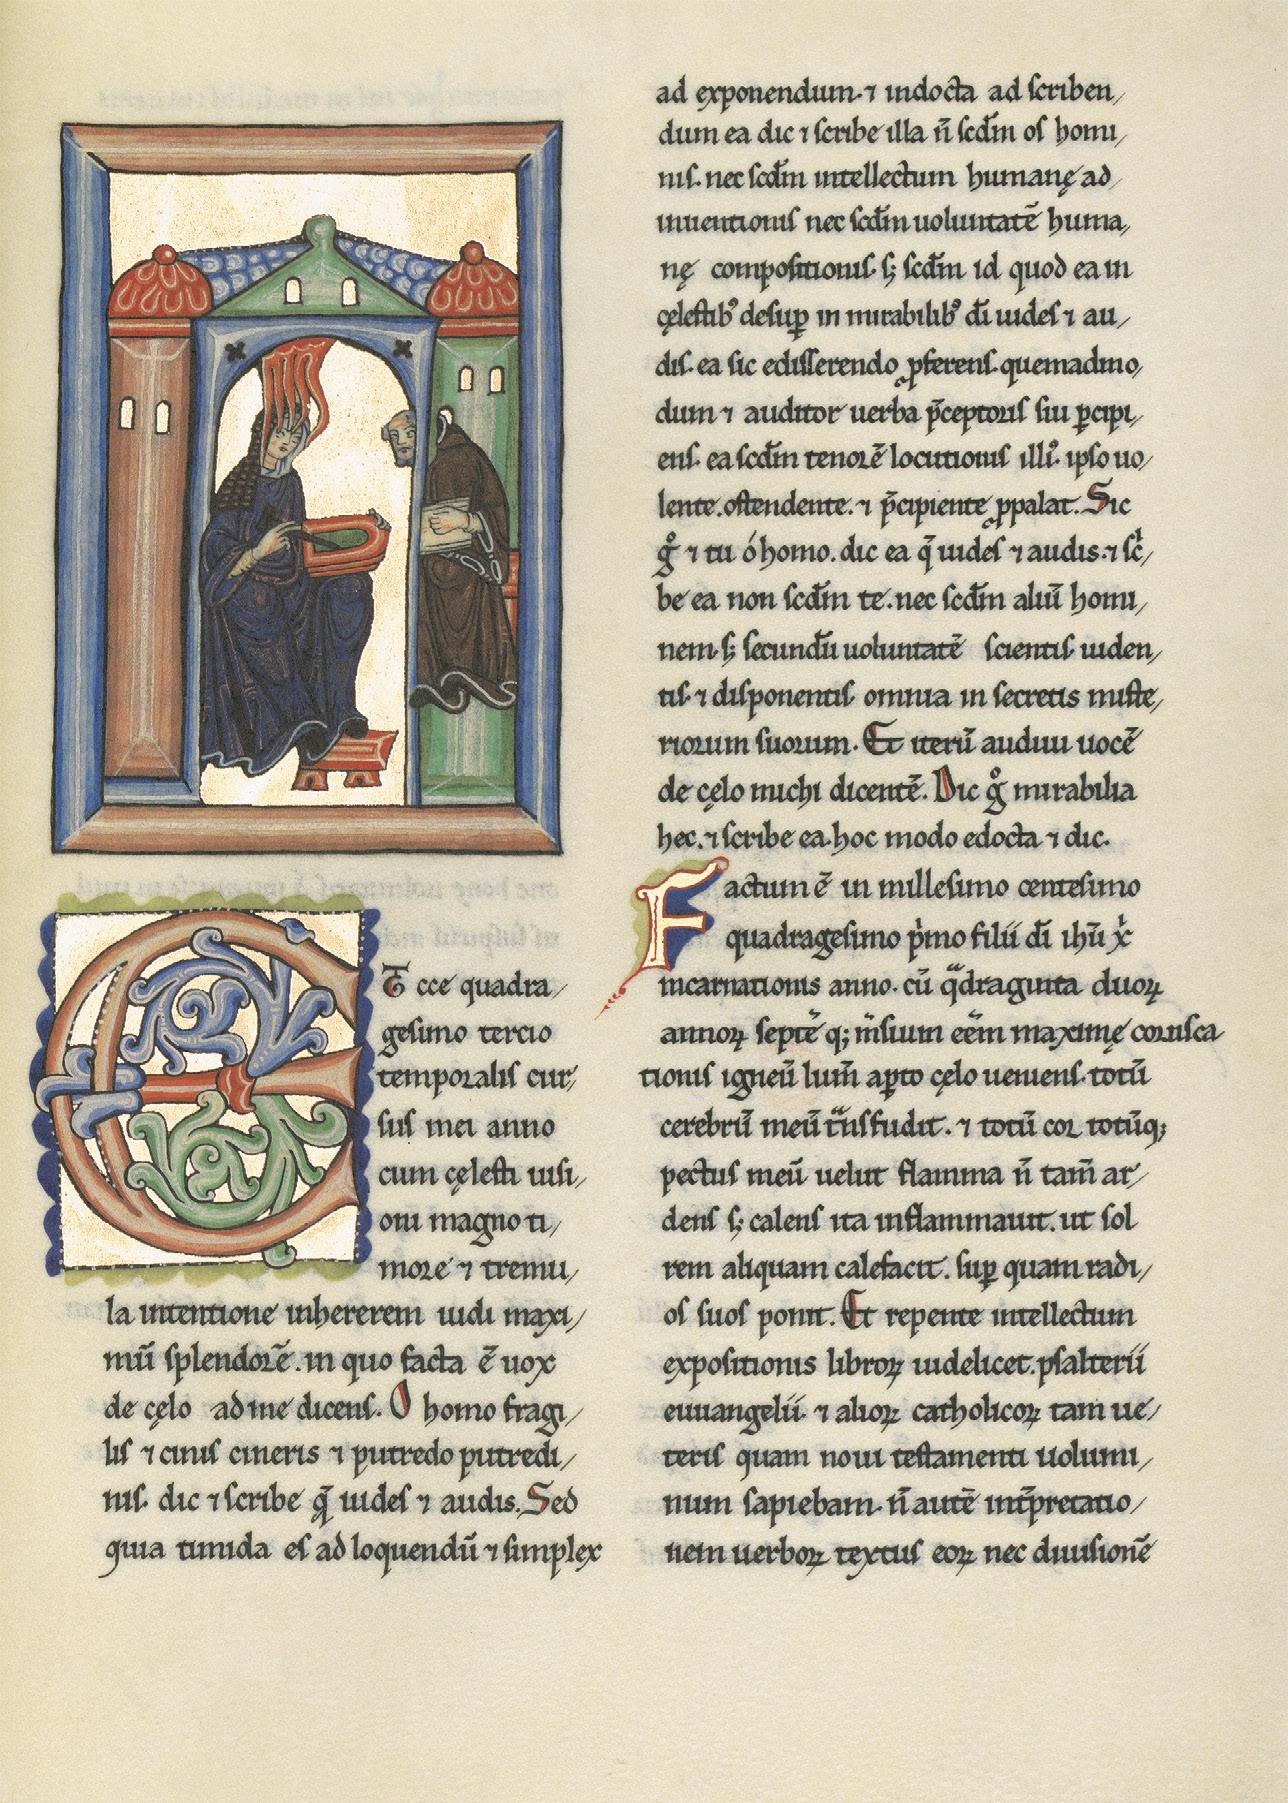 Ecce quadra/
gesimo tercio
temporalis cur/
sus mei anno
cum cęlesti uisi/
oni magno ti/
more ⁊ tremu/
la intentione inhererem uidi maxi/
mū splendorē. in quo facta ē uox
de cęlo ad me dicens. O homo fragi/
lis ⁊ cinis cineris ⁊ putredo putredi/
nis. dic ⁊ scribe q̄ uides ⁊ audis. Sed
quia timida es ad loquendū ⁊ simplex
ad exponendum. ⁊ indocta ad scriben/
dum ea dic ⁊ scribe illa n̄ scd̄m os homi/
nis. nec scd̄m intellectum humanę ad/
inuentionis nec scd̄m uoluntatē huma/
nę compositionis. s; scd̄m id quod ea in
cęlestib᾽ desuꝑ in mirabilib᾽ dī uides ⁊ au/
dis. ea sic edisserendo ꝓferens. quemadmo/
dum ⁊ auditor uerba p̄ceptoris sui ꝑcipi/
ens. ea scd̄m tenorē locutionis illi᾽. ipso uo/
lente. ostendente. ⁊ p̄cipiente ꝓpalat. Sic
gͦ ⁊ tu ó homo. dic ea q̄ uides ⁊ audis. ⁊ scͥ/
be ea non scd̄m te. nec scd̄m aliū homi/
nem. s; secundū uoluntatē scientis. uiden/
tis. ⁊ disponentis omnia in secretis miste/
riorum suorum. Et iterū audiui uocē
de cęlo michi dicentē. Dic gͦ mirabilia
hec. ⁊ scribe ea. hoc modo edocta ⁊ dic.
Factum ē in millesimo centesimo
quadragesimo pͥmo filii dī ihū xͥ
incarnationis anno. cū qͣdraginta duoꝝ
annoꝝ septē q; m̄sium eēm maximę corusca
tionis igneū lum̄ aꝑto cęlo ueniens. totū
cerebrū meū tͣnsfudit. ⁊ totū cor totūq;
pectus meū uelut flamma n̄ tam̄ ar/
dens s; calens ita inflammauit. ut sol
rem aliquam calefacit. suꝑ quam radi/
os suos ponit. Et repente intellectum
expositionis libroꝝ uidelicet. psalterii
euuangelii. ⁊ alioꝝ catholicoꝝ tam ue/
teris quam noui testamenti uolumi/
num sapiebam. n̄ autē int̄pretatio/
nem uerboꝝ textus eoꝝ nec diuisionē